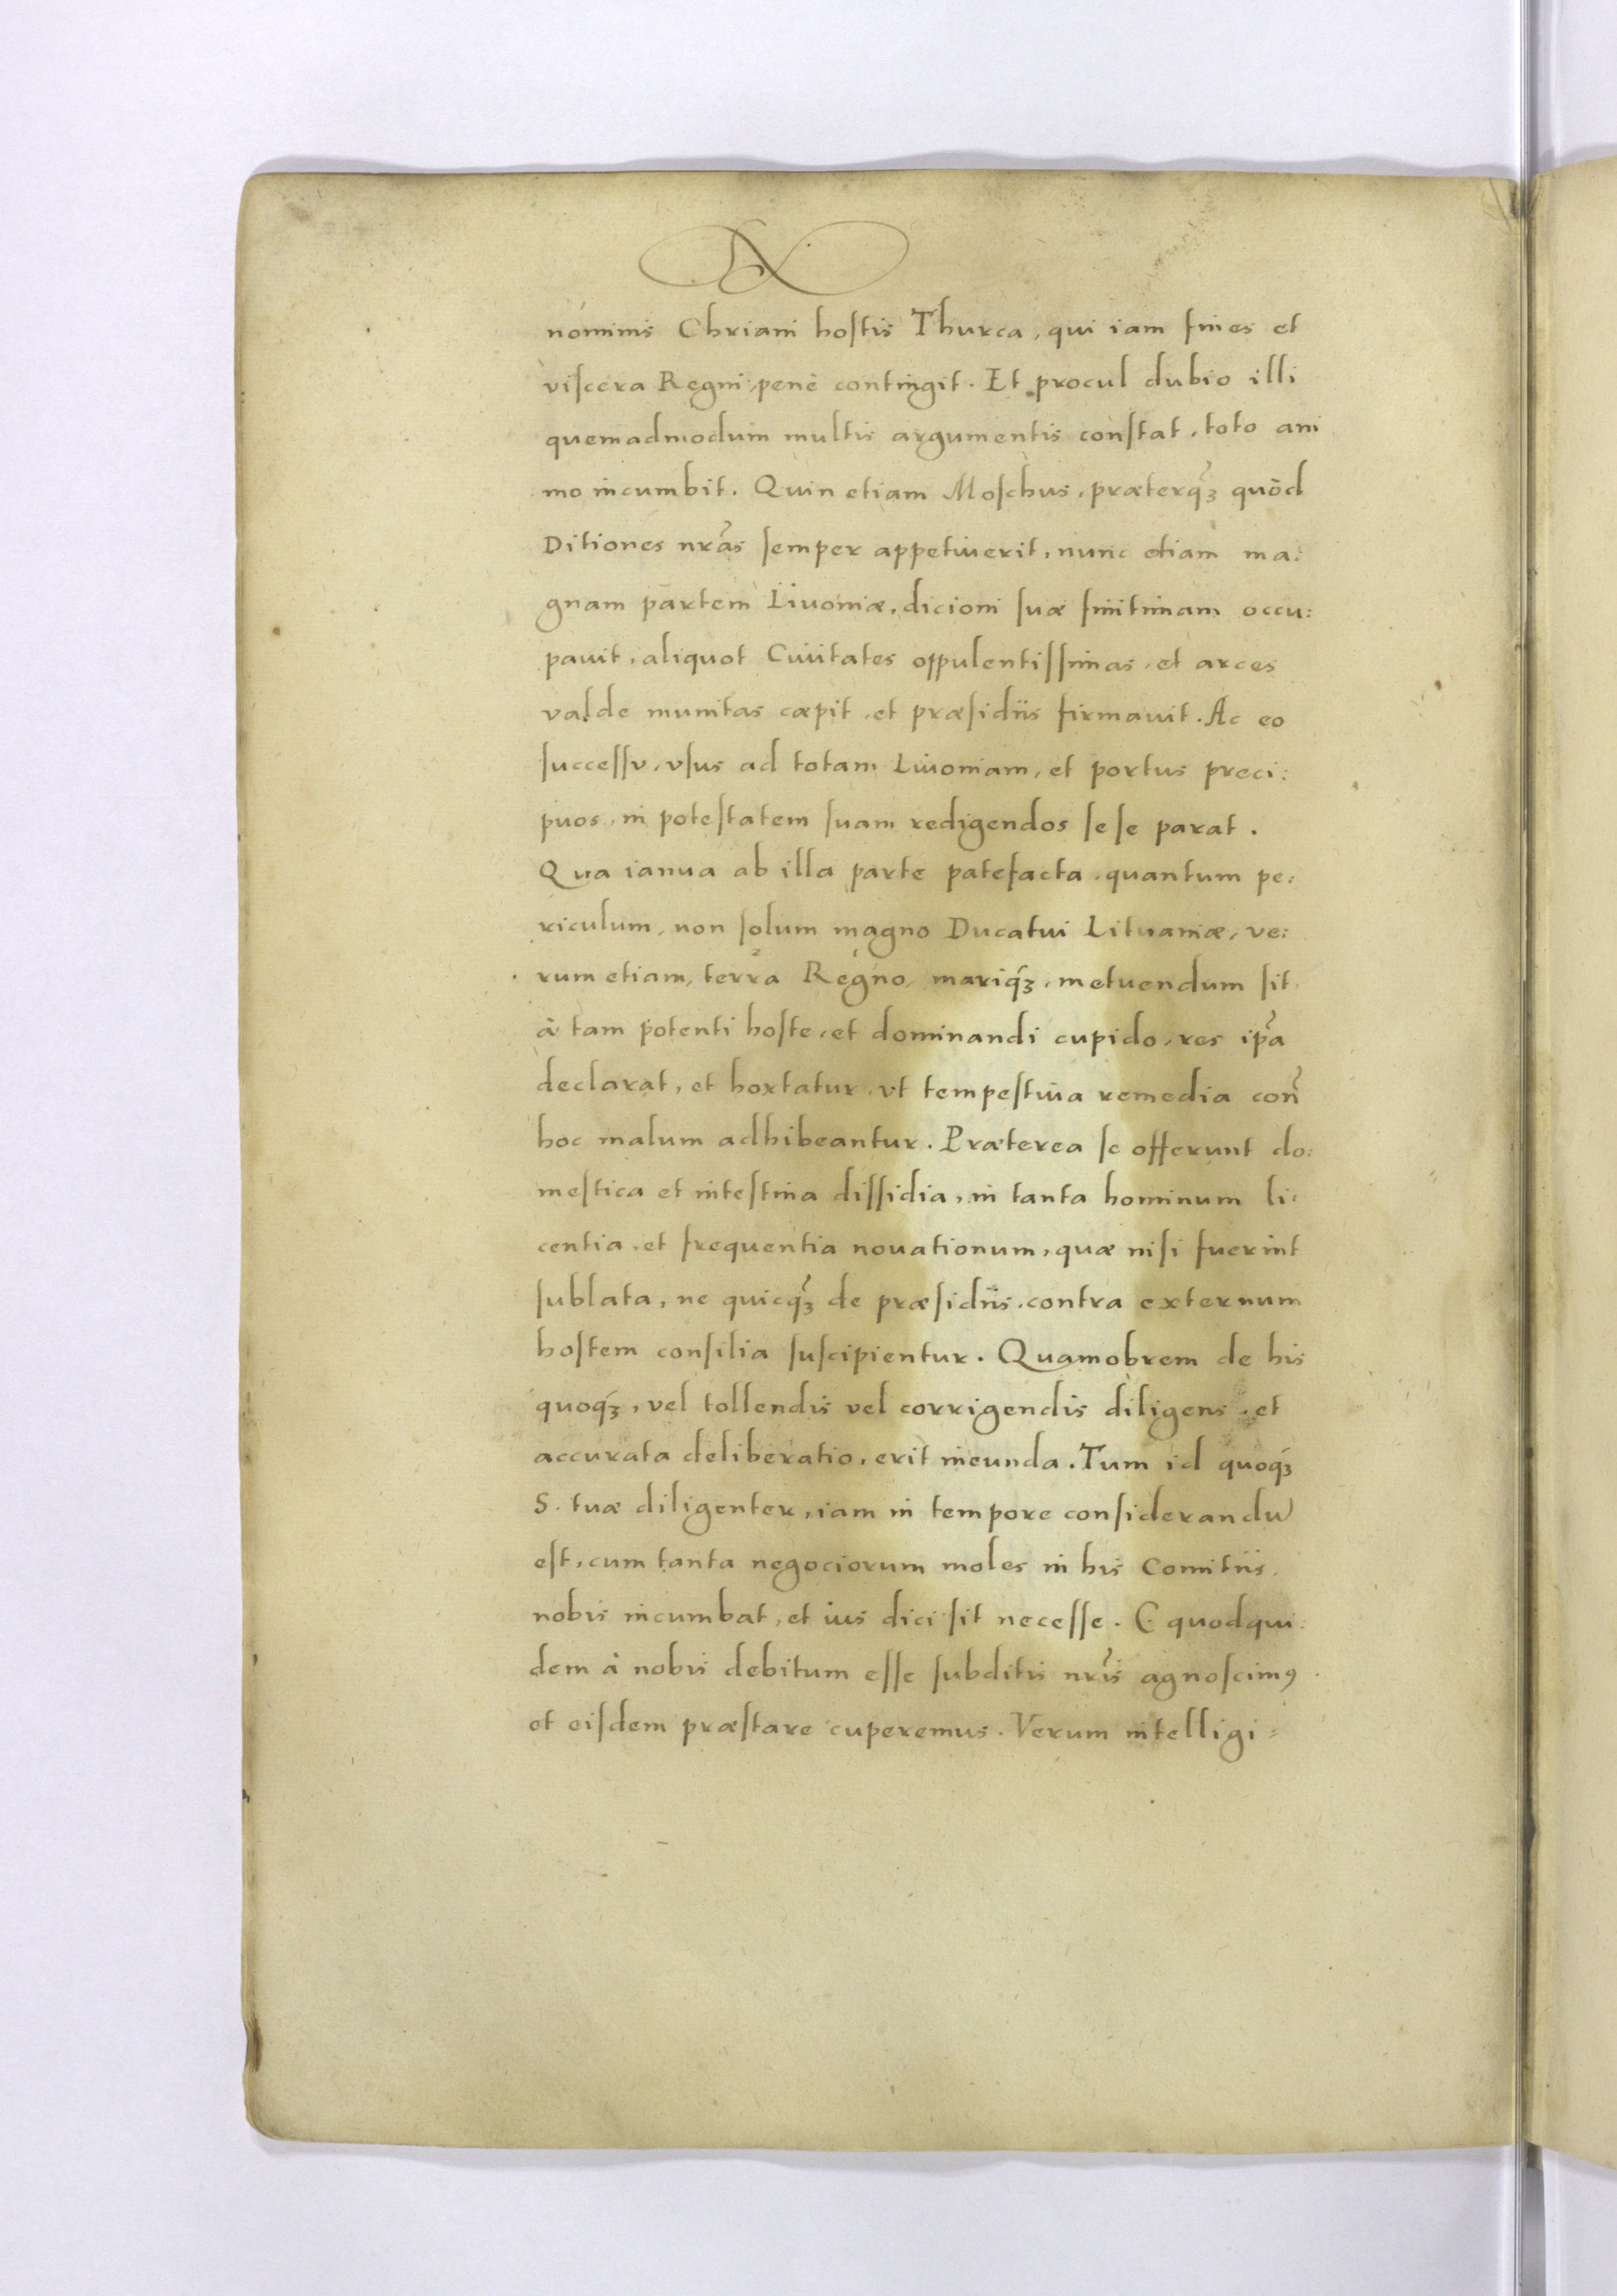 nominis Chriani hostis Thurca, qui iam fines et
viscera Regni penè contingit. Et procul dubio illi
quemadmodum multis argumentis constat, toto ani
mo incumbit. Quin etiam Moschus, præterqꝫ quòd
Ditiones nrãs semper appetiuerit, nunc etiam ma:
gnam partem Liuoniæ, dicioni suæ finitimam occu:
pauit, aliquot Ciuitates oppulentissimas, et arces
valde munitas cæpit, et præsidiis firmauit. Ac eo
successv, vsus ad totam Liuoniam, et portus preci:
puos, in potestatem suam redigendos sese parat.
Qua ianua ab illa parte patefacta, quantum pe:
riculum, non solum magno Ducatui Lituaniæ, ve:
rum etiam, terra Regno, mariqꝫ, metuendum sit
à tam potenti hoste, et dominandi cupido, res ip̃a
declarat, et hortatur, vt tempestiua remedia coñ
hoc malum adhibeantur. Præterea se offerunt do:
mestica et intestina dissidia, in tanta hominum li:
centia, et frequentia nouationum, quæ nisi fuerint
sublata, ne quicqꝫ de præsidiis, contra externum
hostem consilia suscipientur. Quamobrem de his
quoqꝫ, vel tollendis vel corrigendis diligens, et
accurata deliberatio, erit ineunda. Tum id quoqꝫ
S. tuæ diligenter, iam in tempore considerandũ
est, cum tanta negociorum moles in his Comitiis
nobis incumbat, et ius dici sit necesse. E quodqui:
dem à nobis debitum esse subditis nrĩs agnoscimꝰ
et eisdem præstare cuperemus. Verum intelligi=